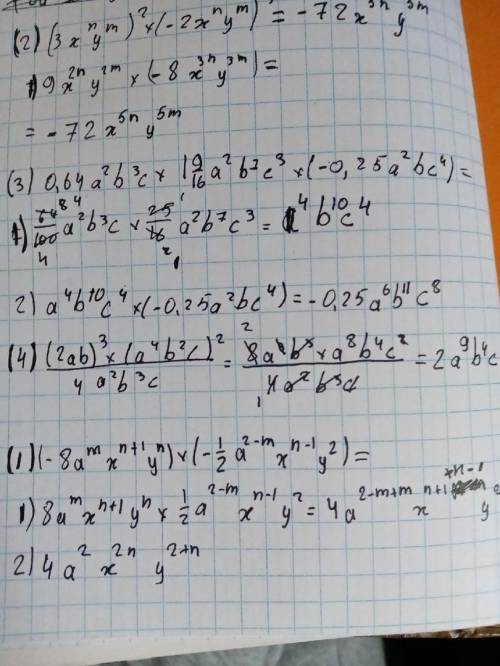 (2) (3xⁿyᵐ)² × (-2xⁿyᵐ)³ = -72x⁵ⁿy⁵ᵐ
1) 9x²ⁿy²ᵐ × (-8x³ⁿy³ᵐ) =
= -72x⁵ⁿy⁵ᵐ
(3) 0,64a²b³c × 1 9/16 a²b⁷c³ × (-0,25a²bc⁴) =
1) 64/100 a²b³c × 25/16 a²b⁷c³ = a⁴b¹⁰c⁴
2) a⁴b¹⁰c⁴ × (-0,25a²bc⁴) = -0,25a⁶b¹¹c⁸
(4) (2ab)³ × (a⁴b²c)² / 4a²b³c = 8a³b³ × a⁸b⁴c² / 4a²b³c = 2a⁹b⁴c
(1) (-8aᵐxⁿ⁺¹yⁿ) × (-1/2 a²⁻ᵐxⁿ⁻¹y²) =
1) 8aᵐxⁿ⁺¹yⁿ × 1/2 a²⁻ᵐxⁿ⁻¹y² = 4a²⁻ᵐ⁺ᵐxⁿ⁺¹⁺ⁿ⁻¹y²
2) 4a²x²ⁿy²⁺ⁿ